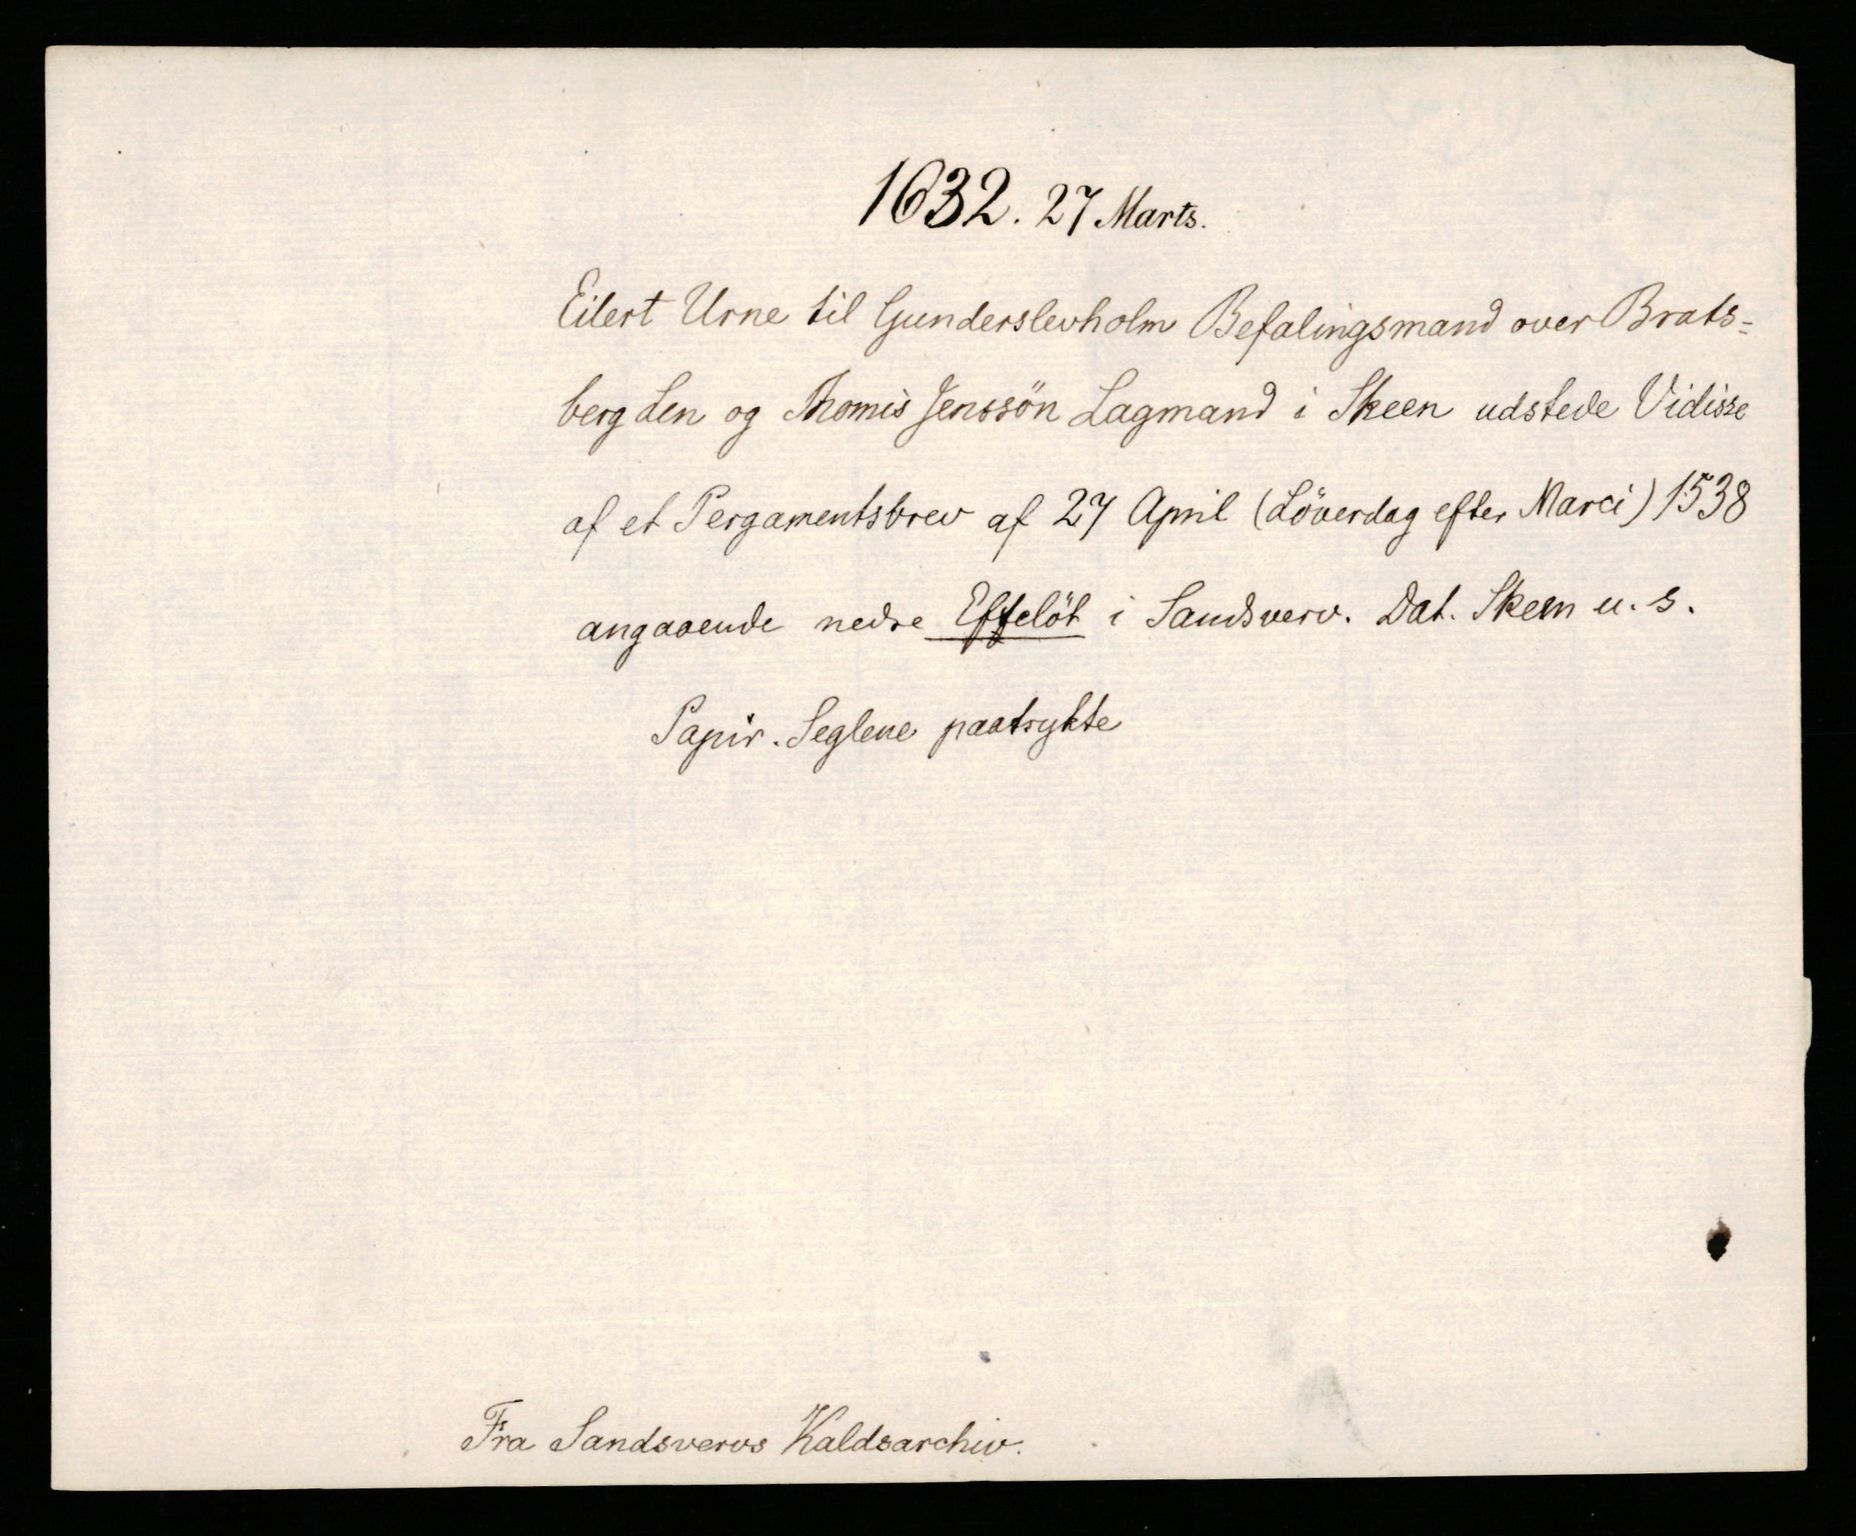 1632. 27 Marts.
Eilert Urne til Gunderslevholm Befalingsmand over Brats=
berg Len og Thomis Jenssön Lagmand i Skeen udstede Vidisse
af et Pergamentsbrev af 27 April (Löverdag efter Marci) 1538
angaaende nedre Effelöt i Sandsverv. Dat. Skeen u. s.
Papir. Seglene paatrykte
Fra Sandsvervs Kaldsarchiv.